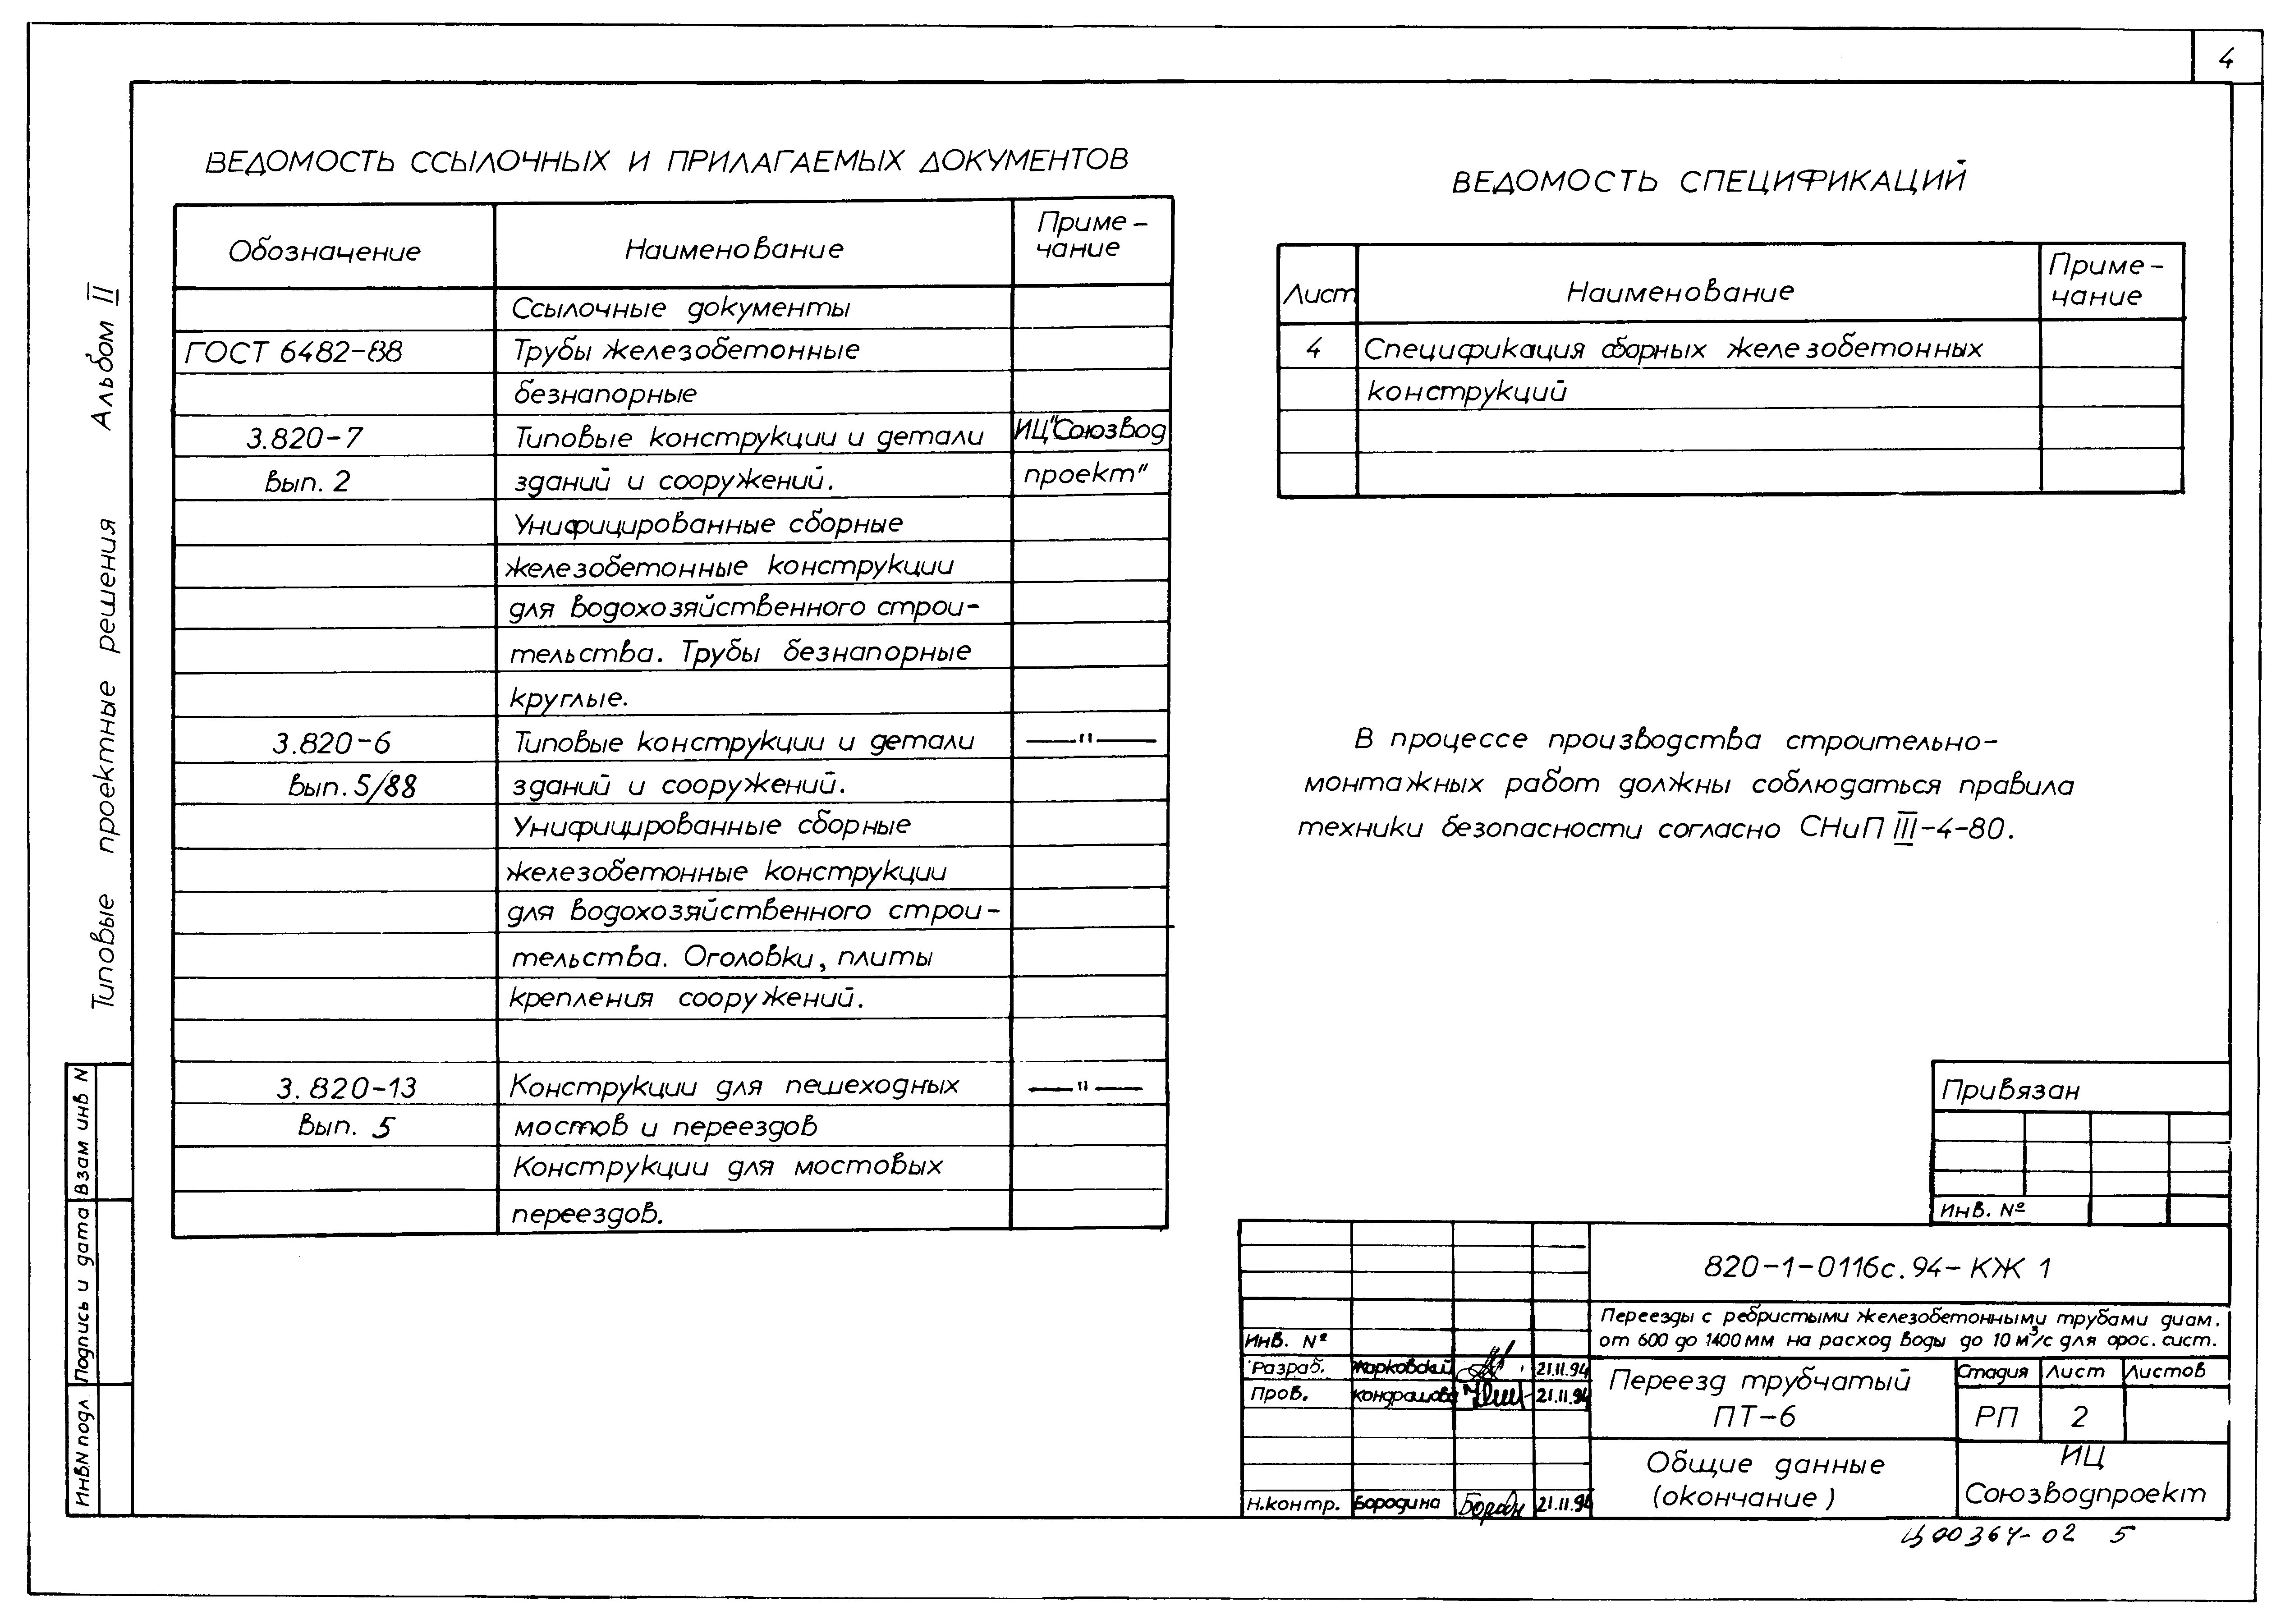 4
ВЕДОМОСТЬ ССЫЛОЧНЫХ И ПРИЛАГАЕМЫХ ДОКУМЕНТОВ
Обозначение Наименование Приме-
чание
Ссылочные документы
ГОСТ 6482-88 Трубы железобетонные
безнапорные
3.820-7 Типовые конструкции и детали ИЦ"Союзвод
Вып. 2 зданий и сооружений. проект"
Унифицированные сборные
железобетонные конструкции
для водохозяйственного строи-
тельства. Трубы безнапорные
круглые.
3.820-6 Типовые конструкции и детали —"—
Вып. 5/88 зданий и сооружений.
Унифицированные сборные
железобетонные конструкции
для водохозяйственного строи-
тельства. Оголовки, плиты
крепления сооружений.
3.820-13 Конструкции для пешеходных —"—
Вып. 5 мостов и переездов
Конструкции для мостовых
переездов.
ВЕДОМОСТЬ СПЕЦИФИКАЦИЙ
Лист Наименование Приме-
чание
4 Спецификация сборных железобетонных
конструкций
В процессе производства строительно-
монтажных работ должны соблюдаться правила
техники безопасности согласно СНиП III-4-80.
Привязан
Инв. №
820-1-0116с.94-КЖ 1
Переезды с ребристыми железобетонными трубами диам.
от 600 до 1400 мм на расход воды до 10 м³/с для орос. сист.
Инв. №
Разраб. Жарковский 21.11.94
Пров. Кондрашова 21.11.94
Н.контр. Бородина Бородин 21.11.94
Переезд трубчатый
ПТ-6
Стадия Лист Листов
РП 2
Общие данные
(окончание)
ИЦ
Союзводпроект
Ц00364-02 5
Типовые проектные решения Альбом II
Взам инв N
Подпись и дата
Инв N подл